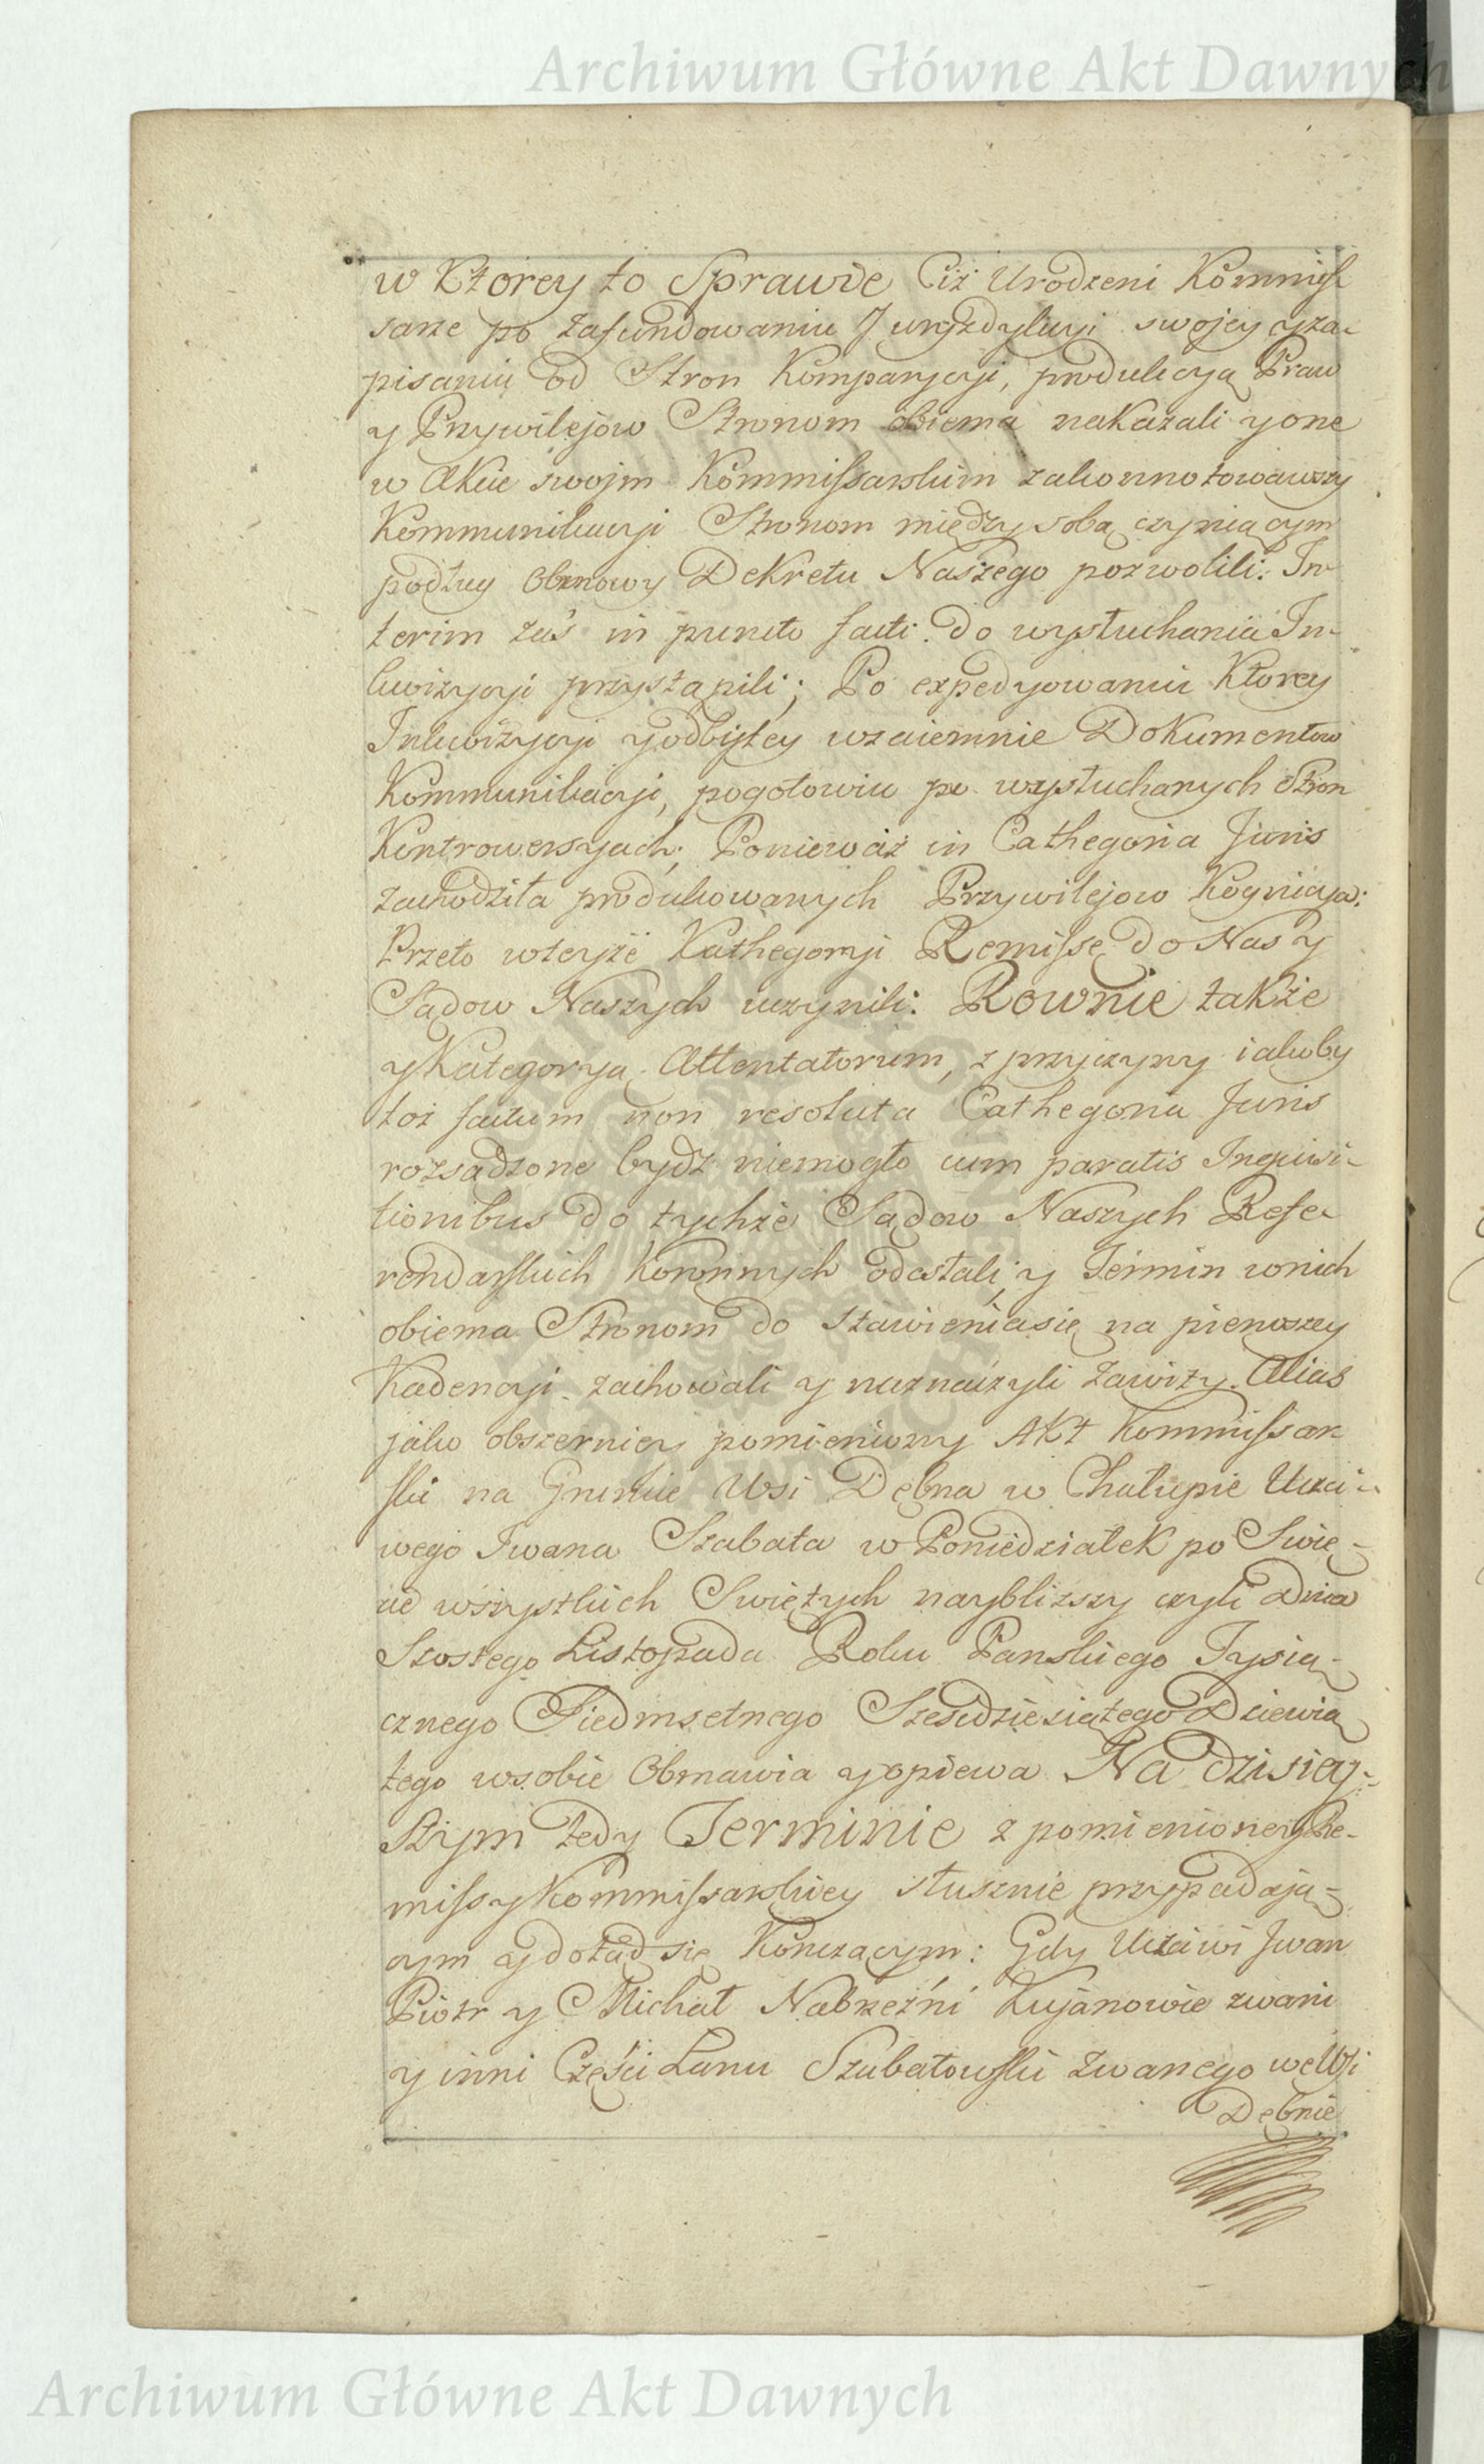 Archiwum Główne Akt Dawnych
w Ktorey to Sprawie Ciż Urodzeni Kommiss
sarze po zafundowaniu Juryzdykcyi swojey y za-
pisaniu od Stron Komparycyi, produkcyą Praw
y Przywilejow Stronom obiema nakazali y one
w Akcie swoim Kommissarskim zakonnotowawszy
Kommunikacyi Stronom między sobą czyniącym
podług Obmowy Dekretu Naszego pozwolili. In-
terim zaś in puncto facti do wysłuchania In-
kwizycyi przystąpili; Po expedyowaniu Ktorey
Inkwizycyi y odbytey wzaiemnie Dokumentow
Kommunikacyi, pogotowiu po wysłuchanych Stron
Kontrowersyach; Ponieważ in Cathegoria Juris
zachodziła produkowanych Przywilejow Kognicya:
Przeto w teyże Kathegoryi Remissę do Nas y
Sądow Naszych uczynili: Rownie także
y Kategorya Attentatorum, z przyczyny iakoby
toż factum non resoluta Cathegoria Juris
rozsądzone bydź niemogło cum paratis Inquisi-
tionibus do tychże Sądow Naszych Refe-
rendarskich Koronnych odesłali, y Termin w nich
obiema Stronom do stawienia się na pierwszey
Kadencyi zachowali y naznaczyli zawity. Alias
jako obszerniey pomieniony Akt Kommissar
ski na Gruncie Wsi Dębna w Chałupie Uczci-
wego Iwana Szabata w Poniedziałek po Swię-
cie wszystkich Swiętych naybliższy czyli Dnia
Szostego Listopada Roku Panskiego Tysią-
cznego Siedmsetnego Sześcdziesiątego Dziewią
tego w sobie Obmawia y opiewa. Na dzisiey-
szym tedy Terminie z pomienioney Re-
missy Kommissarskiey słusznie przypadają-
cym y dotąd się Kończącym: Gdy Uczciwi Jwan
Piotr y Michał Nabrzeźni Kujanowie zwani
y inni Części Łanu Szubatowski zwanego we Wsi
Dębnie
Archiwum Główne Akt Dawnych